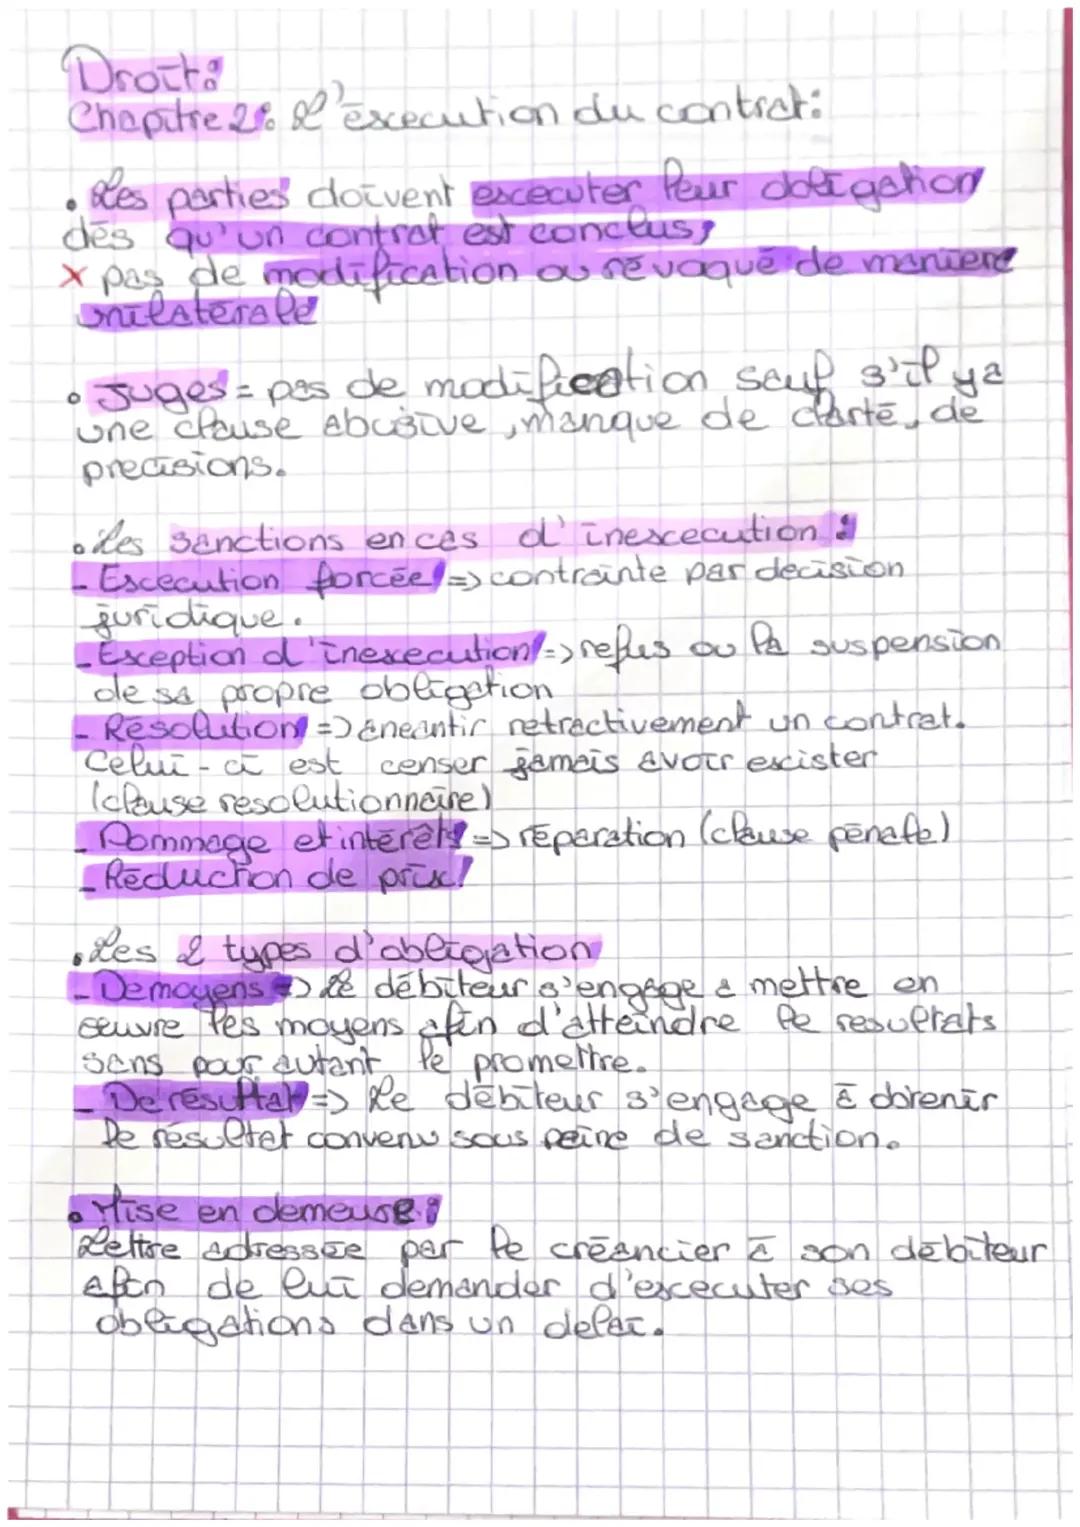 Droit:
Chapitre 2: L'éxecution du contrat:
• Les parties doivent executer leur obligation
dès qu'un contrat est conclus,
x pas de modification ou révoqué de manière
unilatérale
• Juges = pas de modification sauf s'il ya
une clause abusive, manque de clarté, de
precisions.
• Les sanctions en cas d'inexecution :
- Execution forcée => contrainte par decision
juridique.
- Exception d'inexecution => refus ou la suspension
de sa propre obligation
- Résolution => aneantir retractivement un contrat.
Celui-ci est censer jamais avoir exister
(clause resolutionnaire)
- Dommage et intérêts => réparation (clause pénale)
- Réduction de prix!
• Les 2 types d'obligation
- De moyens => le débiteur s'engage a mettre en
œuvre les moyens afin d'atteindre le resultats
sans pour autant le promettre.
- De résultat => Le débiteur s'engage à obtenir
le résultat convenu sous peine de sanction.
• Mise en demeure:
Lettre adressée par le créancier à son débiteur
afin de lui demander d'executer ses
obligations dans un delai.